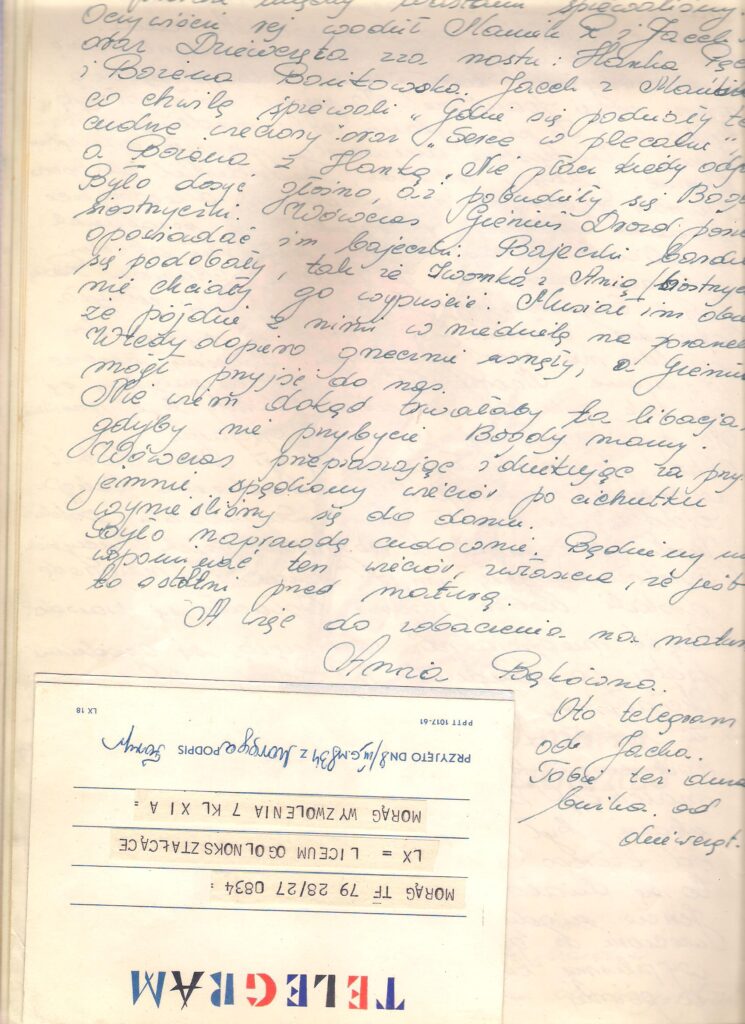 Oczywiście rej wodził Maniek R z Jacek
oraz Dziewczęta zza mostu: Hanka
i Bożena Bonikowska. Jacek z
co chwilę śpiewali „Gdzie się podziały te
cudne wieczory" oraz „Serce w plecaku"
a Bożena z Hanką „Nie płacz kiedy odj
Było dosyć głośno, aż pobudziły się Bog
siostrzyczki. Wówczas Gieniuś Drozd
opowiadać im bajeczki. Bajeczki bardz
się podobały, tak że Iwonka z Anią
nie chciały go wypuścić. Musiał im obie
że pójdzie z nimi w niedzielę na poranek
Wtedy dopiero grzecznie usnęły, a Gieniu
mógł przyjść do nas.
Nie wiem dokąd trwałaby ta libacja
gdyby nie przybycie Bogdy mamy.
Wówczas przepraszając i dziękując za przy
jemnie spędzony wieczór po cichutku
wynieśliśmy się do domu.
Było naprawdę cudownie. Będziemy
wspominać ten wieczór, zwłaszcza, że jest
to ostatni przed maturą.
A więc do zobaczenia na matu
Ania Bąkówna.
Oto telegram
od Jacka.
Tobie też duża
buźka od
dziewcząt.
TELEGRAM
MORĄG TF 79 28/27 0834 =
LX = LICEUM OGOLNOKSZTAŁCĄCE
MORĄG WYZWOLENIA 7 KL XI A =
PRZYJĘTO DN. 8/III G. 834 Z Morąga PODPIS
PPTT 1017-61
LX 18